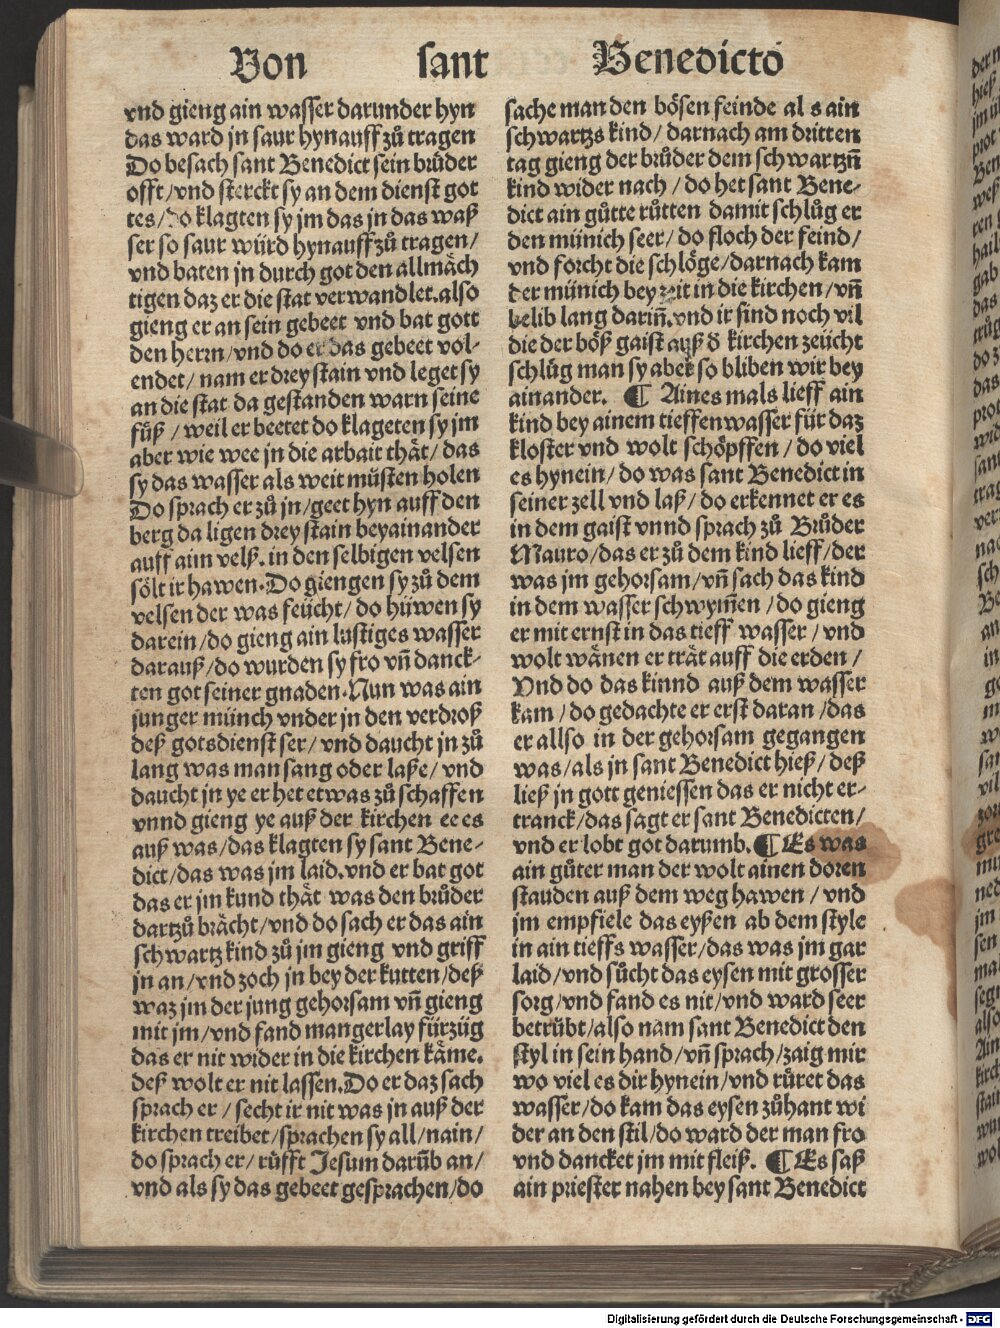 Von sant Benedicto
vnd gieng ain wasser darunder hyn
das ward jn saur hynauff zů tragen
Do besach sant Benedict sein brůder
offt/vnd sterckt sy an dem dienst got
tes/do klagten sy jm das jn das waß
ser so saur würd hynauff zů tragen/
vnd baten jn durch got den allmäch
tigen daz er die stat verwandlet.also
gieng er an sein gebeet vnd bat gott
den herrn/vnd do er das gebeet vol-
endet/nam er drey stain vnd leget sy
an die stat da gestanden warn seine
füß/weil er beetet do klageten sy jm
aber wie wee jn die arbait thät/das
sy das wasser als weit můsten holen
Do sprach er zů jn/geet hyn auff den
berg da ligen drey stain beyainander
auff aim velß.in den selbigen velsen
sölt ir hawen.Do giengen sy zů dem
velsen der was feücht/do hüwen sy
darein/do gieng ain lustiges wasser
darauß/do wurden sy fro vñ danck-
ten got seiner gnaden.Nun was ain
junger münch vnder jn den verdroß
deß gotsdienst ser/vnd daucht jn zů
lang was man sang oder laße/vnd
daucht jn ye er het etwas zů schaffen
vnnd gieng ye auß der kirchen ee es
auß was/das klagten sy sant Bene-
dict/das was jm laid.vnd er bat got
das er jm kund thät was den brůder
dartzů brächt/vnd do sach er das ain
schwartz kind zů jm gieng vnd griff
jn an/vnd zoch jn bey der kutten/deß
waz jm der jung gehorsam vñ gieng
mit jm/vnd fand mangerlay fürzüg
das er nit wider in die kirchen käme.
deß wolt er nit lassen.Do er daz sach
sprach er/secht ir nit was jn auß der
kirchen treibet/sprachen sy all/nain/
do sprach er/růfft Jesum darüb an/
vnd als sy das gebeet gesprachen/do
sache man den bösen feinde als ain
schwartzs kind/darnach am dritten
tag gieng der brůder dem schwartzñ
kind wider nach/do het sant Bene-
dict ain gůtte růtten damit schlůg er
den münich seer/do floch der feind/
vnd forcht die schlöge/darnach kam
der münich bey zeit in die kirchen/vñ
belib lang dariñ.vnd ir sind noch vil
die der böß gaist auß d̕ kirchen zeücht
schlůg man sy aber so bliben wir bey
ainander. ¶ Aines mals lieff ain
kind bey ainem tieffen wasser für daz
kloster vnd wolt schöpffen/do viel
es hynein/do was sant Benedict in
seiner zell vnd laß/do erkennet er es
in dem gaist vnnd sprach zů Brůder
Mauro/das er zů dem kind lieff/der
was jm gehorsam/vñ sach das kind
in dem wasser schwym̃en/do gieng
er mit ernst in das tieff wasser/vnd
wolt wänen er trät auff die erden/
Vnd do das kinnd auß dem wasser
kam/do gedachte er erst daran/das
er allso in der gehorsam gegangen
was/als jn sant Benedict hieß/deß
ließ jn gott geniessen das er nicht er-
tranck/das sagt er sant Benedicten/
vnd er lobt got darumb. ¶ Es was
ain gůter man der wolt ainen doren
stauden auß dem weg hawen/vnd
jm empfiele das eyßen ab dem style
in ain tieffs wasser/das was jm gar
laid/vnd sůcht das eysen mit grosser
sorg/vnd fand es nit/vnd ward seer
betrübt/also nam sant Benedict den
styl in sein hand/vñ sprach/zaig mir
wo viel es dir hynein/vnd růret das
wasser/do kam das eysen zůhant wi
der an den stil/do ward der man fro
vnd dancket jm mit fleiß. ¶ Es saß
ain priester nahen bey sant Benedict
Digitalisierung gefördert durch die Deutsche Forschungsgemeinschaft - DFG